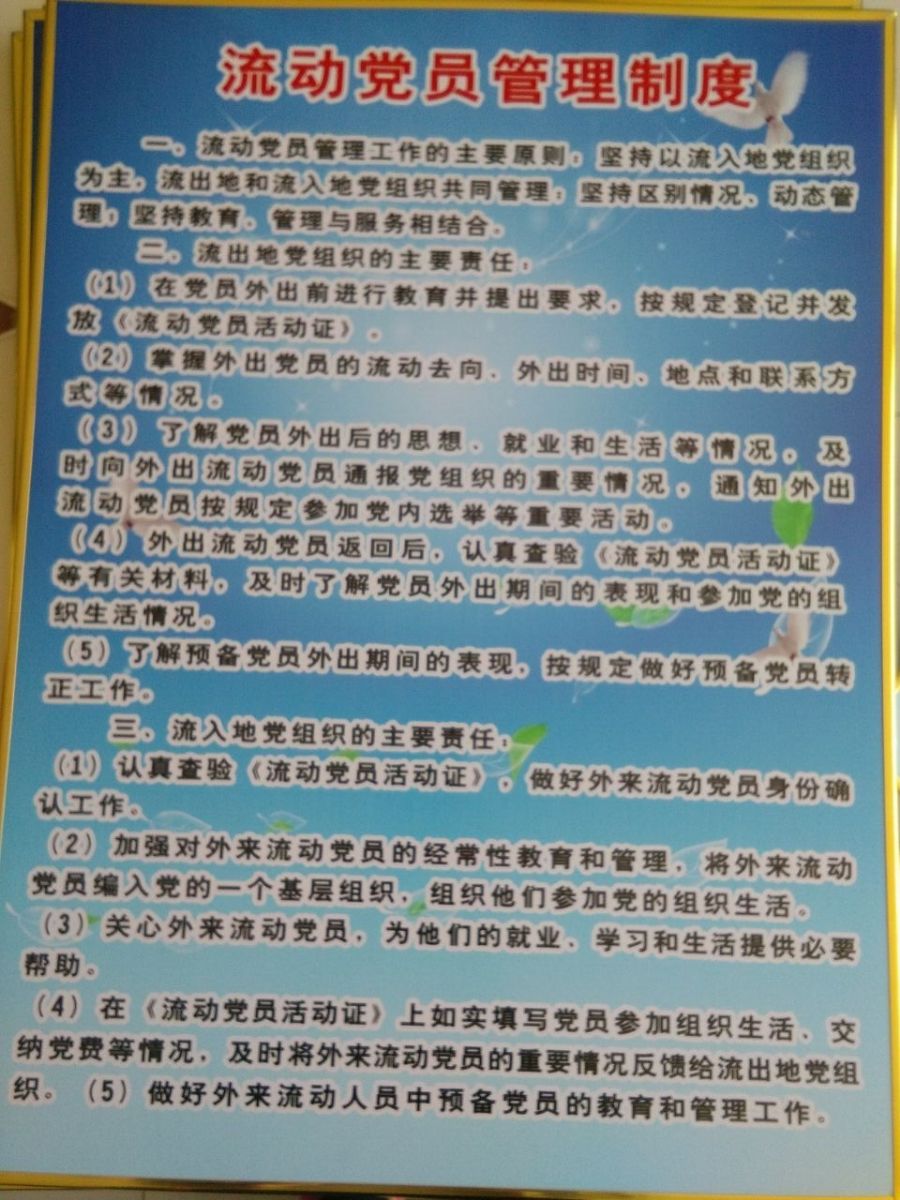 流动党员管理制度
一、流动党员管理工作的主要原则：坚持以流入地党组织
为主，流出地和流入地党组织共同管理；坚持区别情况、动态管
理；坚持教育、管理与服务相结合。
二、流出地党组织的主要责任：
（1）在党员外出前进行教育并提出要求，按规定登记并发
放《流动党员活动证》。
（2）掌握外出党员的流动去向、外出时间、地点和联系方
式等情况。
（3）了解党员外出后的思想、就业和生活等情况，及
时向外出流动党员通报党组织的重要情况，通知外出
流动党员按规定参加党内选举等重要活动。
（4）外出流动党员返回后，认真查验《流动党员活动证》
等有关材料，及时了解党员外出期间的表现和参加党的组
织生活情况。
（5）了解预备党员外出期间的表现，按规定做好预备党员转
正工作。
三、流入地党组织的主要责任：
（1）认真查验《流动党员活动证》，做好外来流动党员身份确
认工作。
（2）加强对外来流动党员的经常性教育和管理，将外来流动
党员编入党的一个基层组织，组织他们参加党的组织生活。
（3）关心外来流动党员，为他们的就业、学习和生活提供必要
帮助。
（4）在《流动党员活动证》上如实填写党员参加组织生活、交
纳党费等情况，及时将外来流动党员的重要情况反馈给流出地党组
织。（5）做好外来流动人员中预备党员的教育和管理工作。